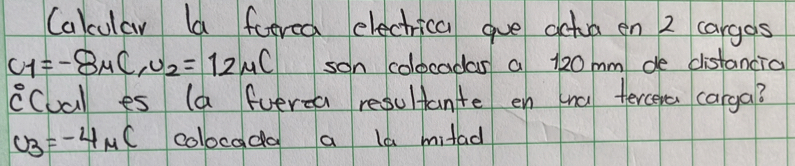 Calcular la fuerza electrica que actua en 2 cargas
U1=-8μC, U2=12μC son colocadas a 120mm de distancia
¿Cual es la fuerza resultante en una tercera carga?
U3=-4μC colocada a la mitad